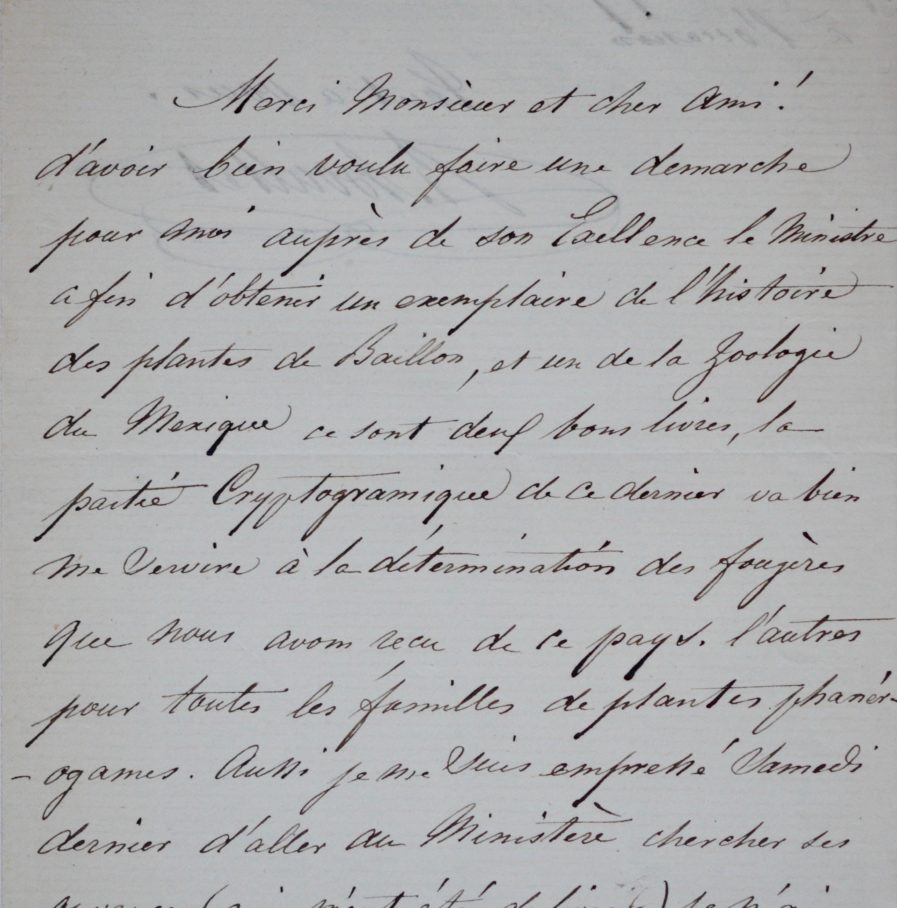 Merci Monsieur et cher Ami!
d'avoir bien voulu faire une demarche
pour moi auprès de son Exellence le Ministre
afin d'obtenir un exemplaire de l'histoire
des plantes de Baillon, et un de la Zoologie
du Mexique ce sont deux bons livres, la
partie Cryptogramique de ce dernier va bien
me servire à la détermination des fougères
que nous avons recu de ce pays. l'autres
pour toutes les familles de plantes phanér-
-ogames. Aussi je me suis empressé Samedi
dernier d'aller au Ministère chercher ses